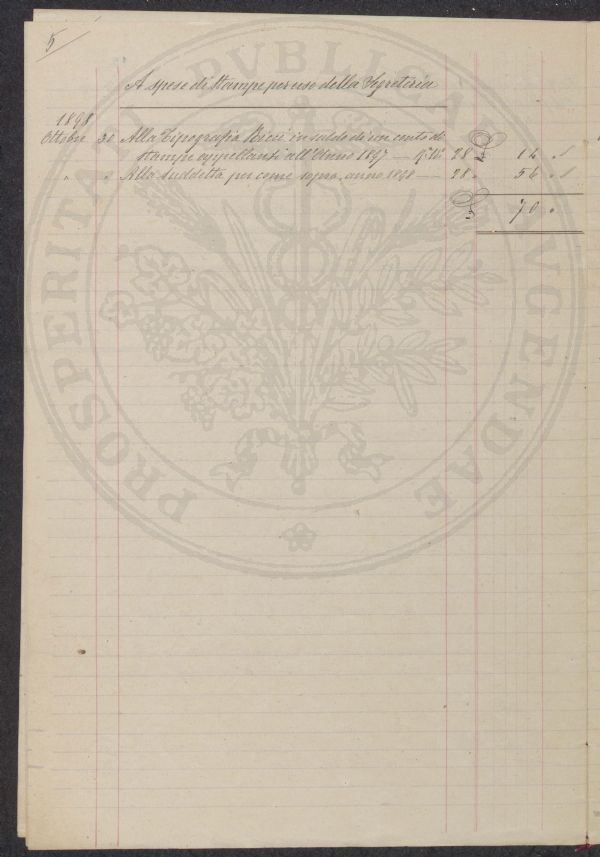 5
A spese di Stampe per uso della Segreteria
1898
Ottobre 30 Alla Tipografia Ricci in saldo di un conto di
stampe spettanti all'Anno 1897 — 28 14
" " Alla suddetta per come sopra, anno 1898 — 28 56
70
PROSPERITATI PVBLICAE AVGENDAE